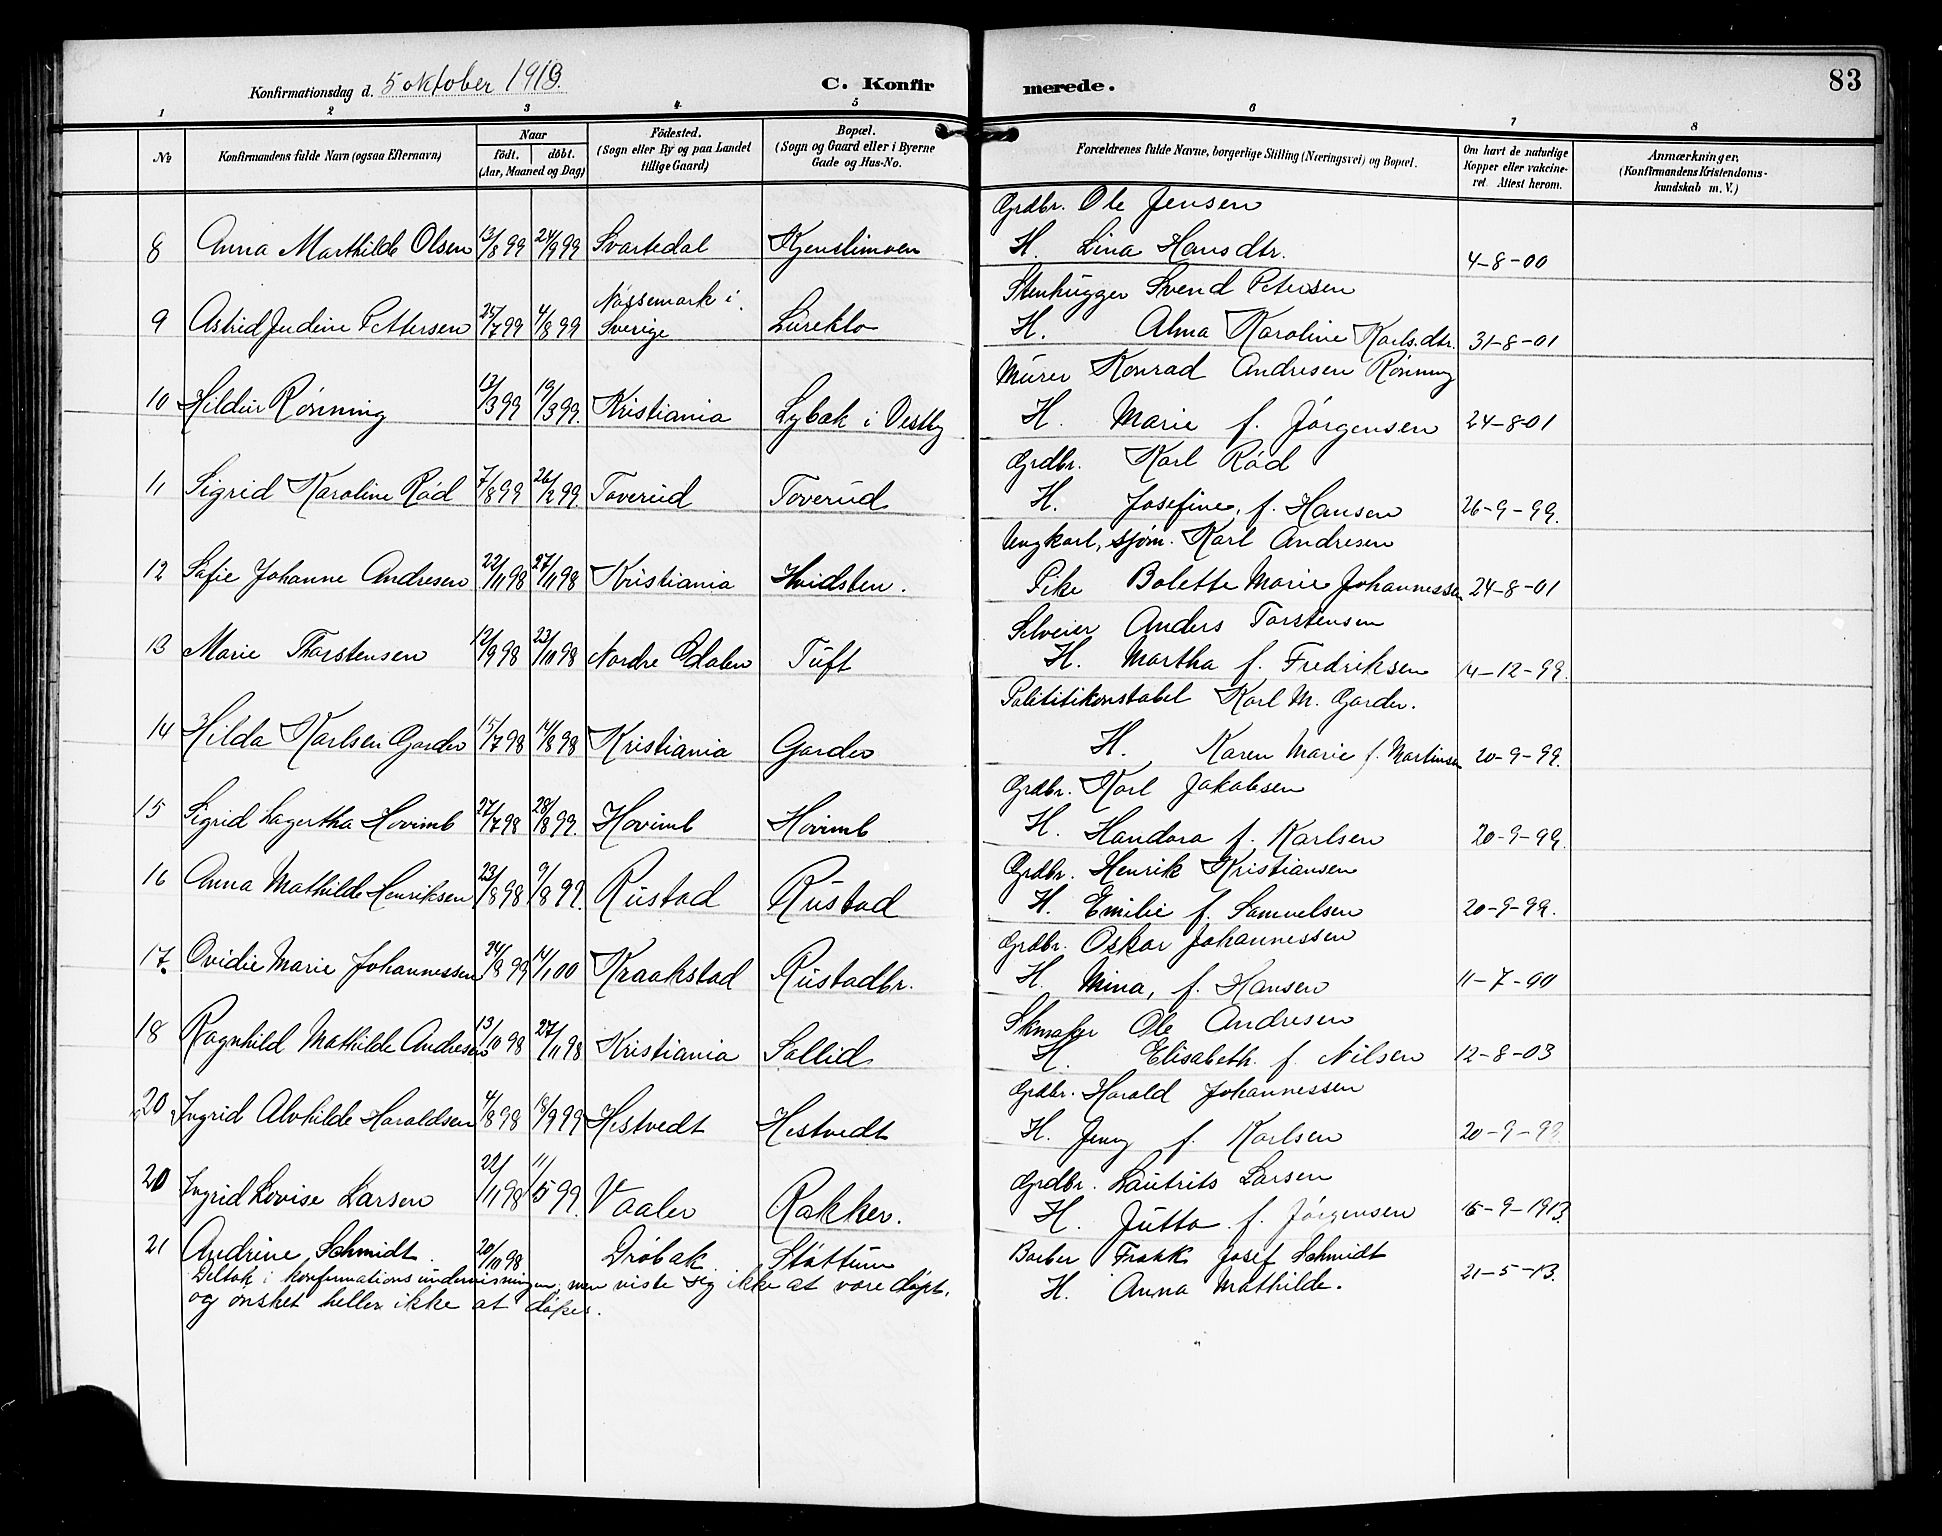 Konfirmationsdag d. 5 oktober 1913.
C. Konfirmerede.
83
1 2 3 4 5 6 7 8
No
Konfirmandens fulde Navn (ogsaa Efternavn)
Naar
født. døbt.
(Aar, Maaned og Dag)
Födested.
(Sogn eller By og paa Landet
tillige Gaard)
Bopæl.
(Sogn og Gaard eller i Byerne
Gade og Hus-No.
Forældrenes fulde Navne, borgerlige Stilling (Næringsvei) og Bopæl.
Om havt de naturlige
Kopper eller vakcine-
ret. Attest herom.
Anmærkninger.
(Konfirmandens Kristendoms-
kundskab m. V.)
Grdbr. Ole Jensen
8 Anna Marthilde Olsen 13/8 99 24/9 99 Svartedal Kjenslimoen H. Lina Hansdtr. 4-8-00
Nössemark i Stenhugger Svend Petersen
9 Astrid Judine Pettersen 25/7 99 4/8 99 Sverige Lüreklo H. Alma Karoline Karlsdtr. 31-8-01
Mürer Konrad Andresen Rønning
10 Hildür Rønning 13/3 99 19/3 99. Kristiania Lybak i Vestby H. Marie f. Jörgensen 24-8-01
Grdbr. Karl Röd
11 Sigrid Karoline Röd 7/8 99 26/2 99. Toverüd Toverüd H. Josefine, f. Hansen 26-9-99.
Ungkarl, sjöm. Karl Andresen
12 Safie Johanne Andresen 22/11 98 27/11 98 Kristiania Hvidsten. Pike Bolette Marie Johannessen 24-8-01
Selveier Anders Torstensen
13 Marie Thorstensen 12/9 98 23/10 98 Nordre Odalen Tüft H. Martha f. Fredriksen 14-12-99.
Polititikonstabel Karl M. Garder.
14 Hilda Karlsen Garder 15/7 98 14/8 98 Kristiania Garder H. Karen Marie f. Martinsen 20-9-99.
Grdbr. Karl Jakobsen
15 Sigrid Lagertha Hovimb 27/7 98 28/8 99. Hovimb Hovimb H. Handora f. Karlsen 20-9-99.
Grdbr. Henrik Kristiansen
16 Anna Mathilde Henriksen 23/8 98 9/8 99. Rüstad Rüstad H. Emilie f. Samuelsen 20-9-99.
Grdbr. Oskar Johannessen
17. Ovidie Marie Johannessen 24/9 99 14/1 00 Kraakstad Rüstadbr. H. Mina, f. Hansen 11-7-90
Skmaker Ole Andresen
18 Ragnhild Mathilde Andresen 13/10 98 27/11 98 Kristiania Sollid H. Elisabeth f. Nilsen 12-8-03
Grdbr. Harald Johannessen
20 Ingrid Alvhilde Haraldsen 4/8 98 18/9 99 Hestvedt Hestvedt H. Jeny f. Karlsen 20-9-99
Grdbr. Lautrits Larsen
20 Ingrid Lovise Larsen 22/11 98 11/5 99. Vaaler Rakker. H. Jütta f. Jörgensen 15-9-1913
21 Andrine Schmidt. 20/11 98 Dröbak Stöttum Barber Frank Josef Schmidt 21-5-13.
Deltok i konfirmationsundervisningen, men viste sig ikke at være döpt,
og önsket heller ikke at döpes.
H. Anna Mathilde.